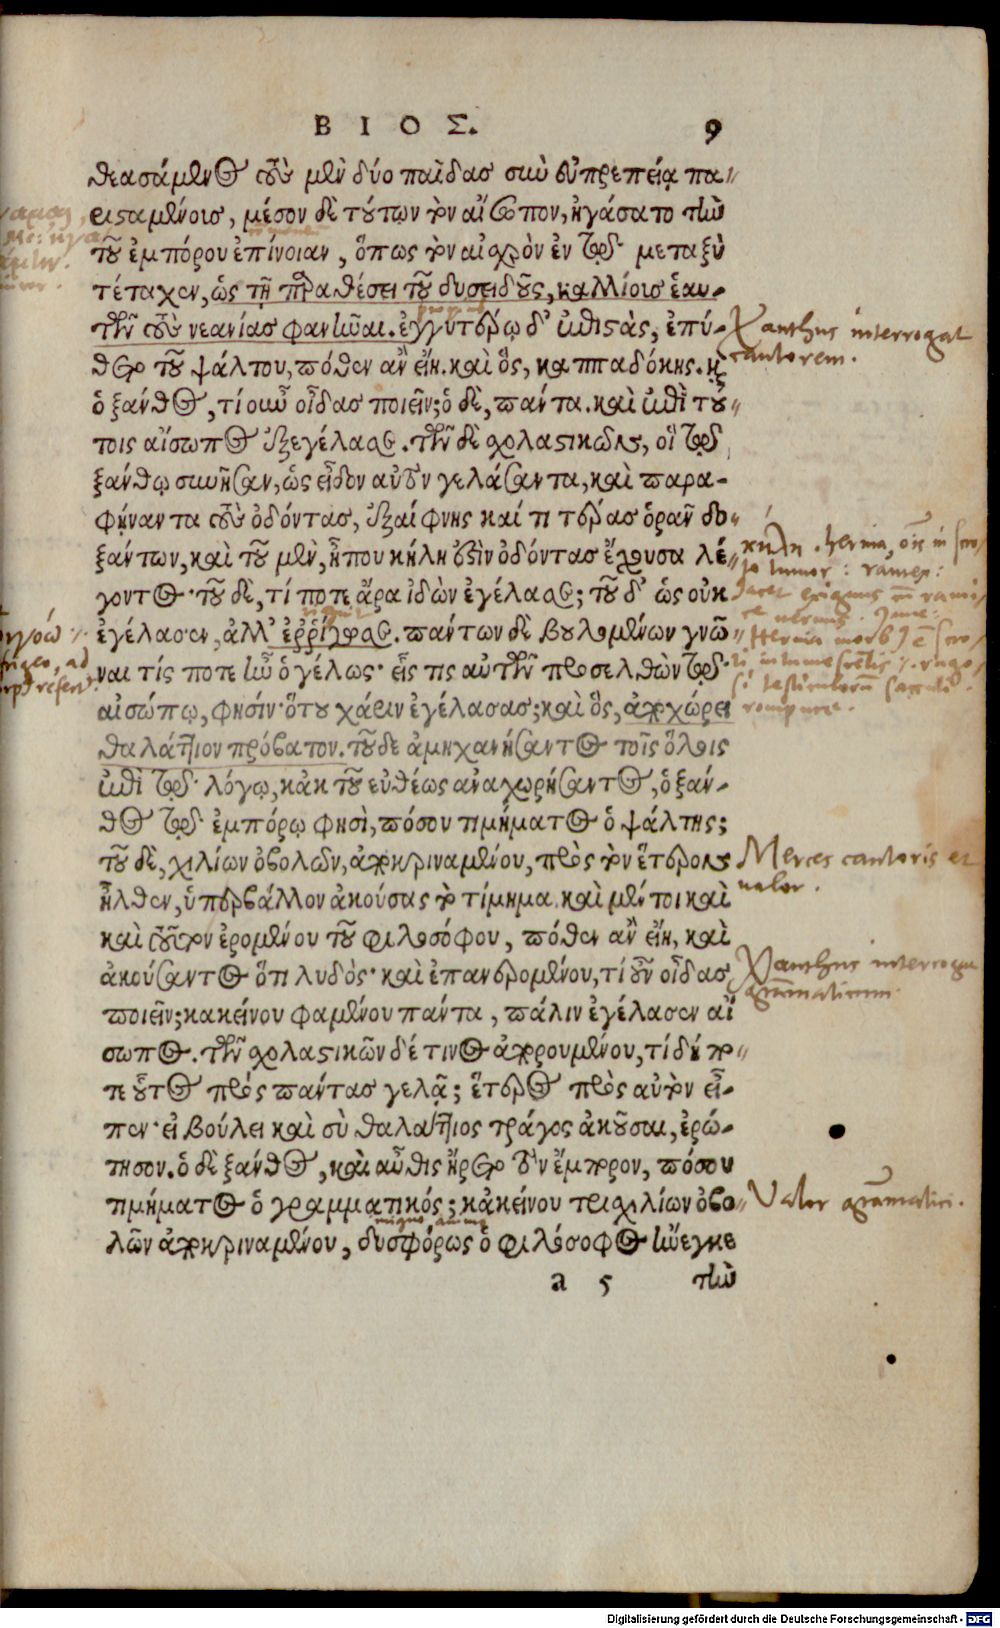 ΒΙΟΣ. 9
θεασάμενος τοὺς μὲν δύο παῖδας σὺν εὐπρεπείᾳ πα-
ρισαμένοις, μέσον δὲ τούτων τὸν αἴσωπον, ἠγάσατο τὴν
τοῦ ἐμπόρου ἐπίνοιαν, ὅπως τὸν αἰσχρὸν ἐν τῷ μεταξὺ
τέταχεν, ὡς τῇ παραθέσει τοῦ δυσειδοῦς, καλλίοις ἑαυ-
τῶν τοὺς νεανίας φανῆναι. ἐγγυτέρω δ' ἐπιστὰς, ἐπύ-
θετο τοῦ ψάλτου, πόθεν ἂν εἴη. καὶ ὃς, καππαδόκης. καὶ
ὁ ξάνθος, τί οὖν οἶδας ποιεῖν; ὁ δὲ, πάντα. καὶ ἐπὶ τού-
τοις αἴσωπος ἐξεγέλασε. τῶν δὲ σχολαστικῶν, οἳ τῷ
ξάνθῳ συνῆσαν, ὡς εἶδον αὐτὸν γελάσαντα, καὶ παρα-
φήναντα τοὺς ὀδόντας, ἐξαίφνης καί τι τέρας ὁρᾶν δο-
ξάντων, καὶ τοῦ μὲν, ἦπου κήλη ἐστὶν ὀδόντας ἔχουσα λέ-
γοντος· τοῦ δὲ, τί ποτε ἄρα ἰδὼν ἐγέλασε; τοῦ δ' ὡς οὐκ
ἐγέλασεν, ἀλλ' ἐῤῥίγωσε. πάντων δὲ βουλομένων γνῶ-
ναι τίς ποτε ἦν ὁ γέλως· εἷς τις αὐτῶν προσελθὼν τῷ
αἰσώπῳ, φησίν· ὅτου χάριν ἐγέλασας; καὶ ὃς, ἀποχώρει
θαλάττιον πρόβατον. τοῦδε ἀμηχανήσαντος τοῖς ὅλοις
ἐπὶ τῷ λόγῳ, κἀκ τοῦ εὐθέως ἀναχωρήσαντος, ὁ ξάν-
θος τῷ ἐμπόρῳ φησὶ, πόσου τιμήματος ὁ ψάλτης;
τοῦ δὲ, χιλίων ὀβολῶν, ἀποκριναμένου, πρὸς τὸν ἕτερον
ἦλθεν, ὑπερβάλλον ἀκούσας τὸ τίμημα. καὶ μέντοι καὶ
καὶ τοῦτον ἐρομένου τοῦ φιλοσόφου, πόθεν ἂν εἴη, καὶ
ἀκούσαντος ὅτι λυδός· καὶ ἐπανερομένου, τί οὖν οἶδας
ποιεῖν; κακείνου φαμένου πάντα, πάλιν ἐγέλασεν αἴ
σωπος. τῶν σχολαστικῶν δέ τινος ἀπορουμένου, τί δή πο-
τε οὗτος πρός πάντας γελᾷ; ἕτερος πρὸς αὐτὸν εἶ-
πεν· εἰ βούλει καὶ σὺ θαλάττιος τράγος ἀκοῦσαι, ἐρώ-
τησον. ὁ δὲ ξάνθος, καὶ αὖθις ἤρετο τὸν ἔμπορον, πόσου
τιμήματος ὁ γραμματικός; κἀκείνου τρισχιλίων ὀβο-
λῶν ἀποκριναμένου, δυσφόρως ὁ φιλόσοφος ἤνεγκε
a 5 τὴν
Xanthus interrogat
cantorem.
κήλη. hernia, in scro
to tumor : ramex :
Hernia
Merces cantoris et
valor.
Xanthus interroga
gram̄aticum.
Valor gram̄atici.
Digitalisierung gefördert durch die Deutsche Forschungsgemeinschaft - DFG